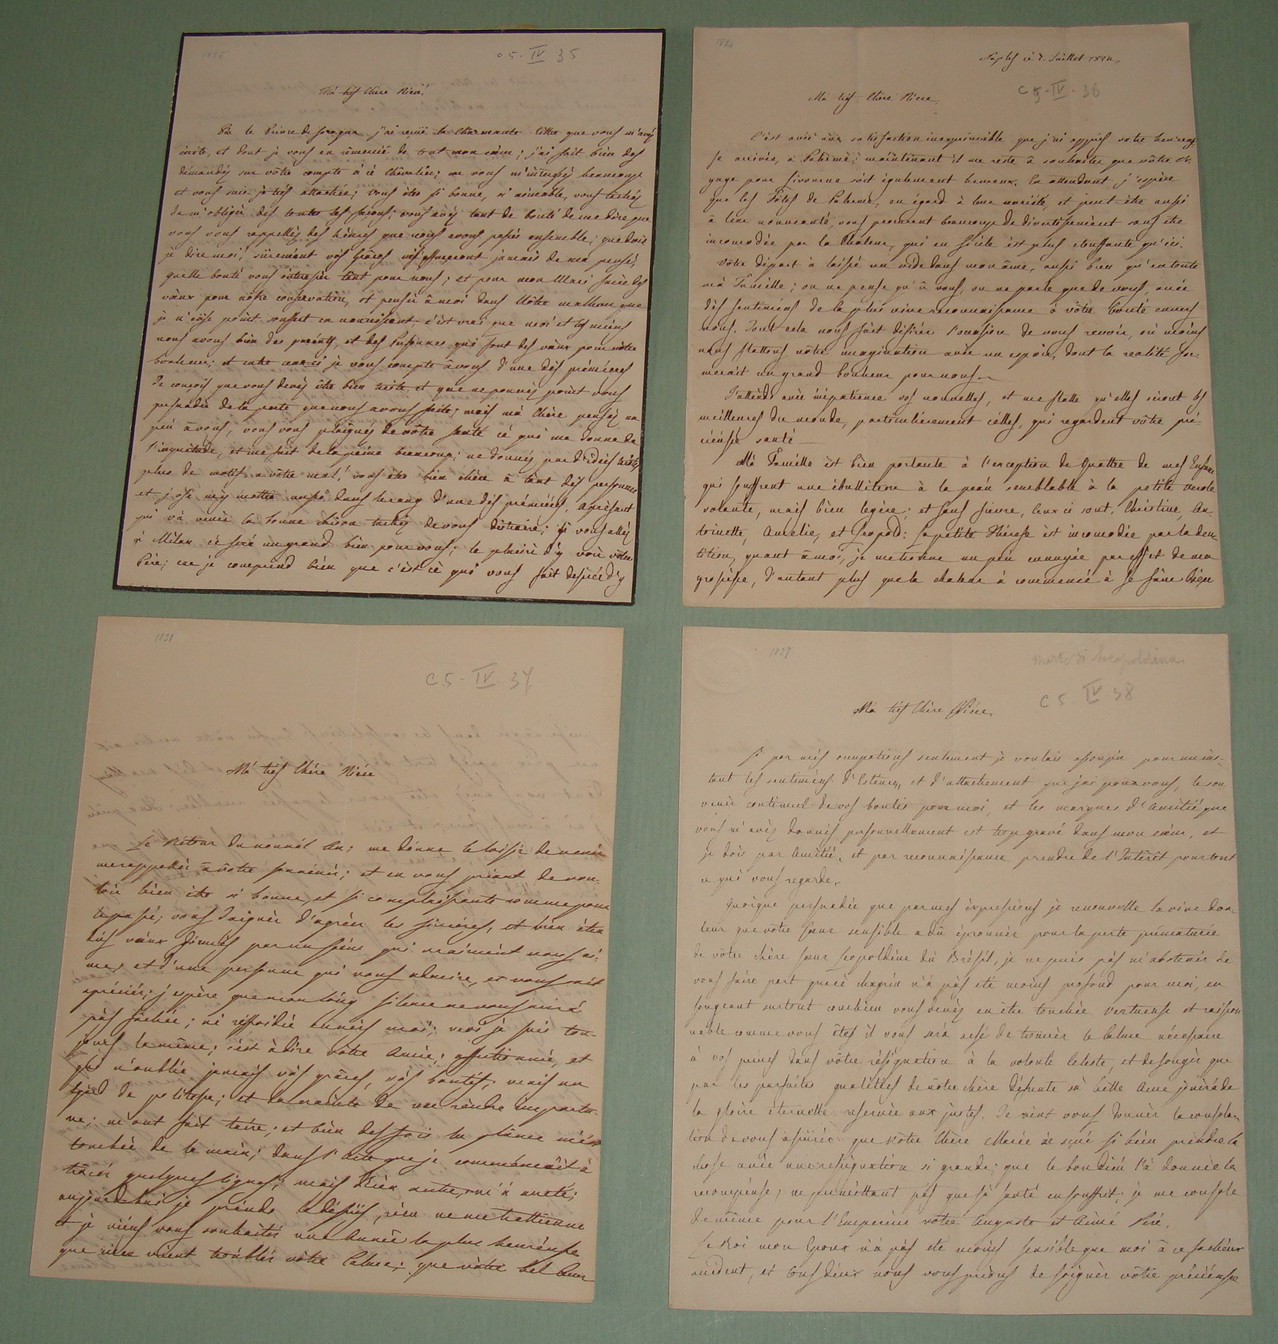 1825
C5. IV 35
Ma très Chère Nièce!
Par le Prince de j'ai reçue la Charmante lettre que vous m'avez
écrite, et dont je vous en remercie de tout mon cœur; j'ai fait bien des
demandes sur votre compte à ce Chevalier; car vous m'intéressez beaucoup
et vous suis je très attachée; vous êtes si bonne, si aimable, vous tachez
de m'obliger des toutes les façons; vous avez tant de bonté de me dire que
vous vous rappellez des heures que nous avons passés ensemble; que dois
je dire moi, surement vos Graces ne jamais de ma pensée,
quelle bonté vous tant pour nous; et pour mon Mari faire des
vœux pour nôtre conservation, et penser à moi dans Vôtre malheur que
je n'ose point en nourrissant, c'est vrai que moi et les miens
nous avons bien des parents, et des personnes qui font des vœux pour nôtre
bonheur; et entre je vous compte à vous d'une des premières
Je conçois que vous devez être bien triste, et que ne pouvez point vous
persuader de la perte que nous avons faite; mais ma Chère pensez un
peu à vous, vous vous plaignez de vôtre santé ce qui me donne de
l'inquiétude, et me fait de la peine beaucoup; ne donnez pas d'idées tristes
plus de motif à vôtre mal; vous êtes bien chère à tant des personnes
et j'ose m'y mettre aussi dans le rang d'une des premières. Apresent
qui va venir la bonne saison tachez de vous distraire; si vous allez
à Milan ce sera un grand bien pour vous; le plaisir d'y voir vôtre
Père; car je comprend bien que c'est ce qui vous fait desirer d'y
1824
Naples ce 2. Juillet 1824.
C5-IV-36
Ma très Chère Nièce.
C'est avec une satisfaction inexprimable que j'ai appris votre heureuse
arrivée à Palerme; maintenant il me reste à souhaiter que vôtre vo-
yage pour Livourne soit également heureux. En attendant j'espère
que les Fêtes de Palerme, en égard à leur variété, et peut être aussi
à leur nouveauté, vous procurent beaucoup de divertissement sans être
incomodée par la Chaleur, qui en Sicile est plus étouffante qu'ici.
Votre départ à laissé un vide dans mon âme, aussi bien qu'en toute
mà Famille; on ne pense qu'à vous, on ne parle que de vous, avec
des sentimens de la plus vive reconnaissance à vôtre bonté envers
nous. Tout cela nous fait désirer l'occasion de vous revoir, où moins
nous flattons nôtre imagination avec un espoir, dont la réalité for-
merait un grand bonheur pour nous.
J'attends avec impatience vos nouvelles, et me flatte qu'elles seront les
meilleures du monde, particulierement celles, qui regardent vôtre pré-
cieuse santé.
Ma Famille est bien portante à l'exception de Quattre de mes Enfans
qui souffrent une ébullition à la peau semblable à la petite verole
volante, mais bien legère; et sans fievre, Ceux ci sont, Christine, An-
toinette, Amelie, et Leopold: La petite Thérese est incomodée par la den-
tition, quant à moi, je me trouve un peu ennuyée par effet de ma
grossesse, d'autant plus que la chaleur à commencé à se faire bien
1828
C5-IV 37
Ma très Chère Nièce
Le Retour du nouvel An; me donne le loisir de venir
me rappeller à vôtre souvenir; et en vous priant de vou-
loir bien être si bonne, et si complaisante comme pour
le passé; vous daigner d'agréer les sincères, et bien
vœux par un qui vraiment vous ai-
me, et d'une personne qui vous admire, et vous sait
aprécier; j'espère que mon long silence ne vous aura
pas fachée; ni envers moi; moi je suis tou-
jours la même; c'est à dire vôtre Amie; affectionnée, et
qui n'oublie jamais vos graces, vos bontés; mais un
de politesse; et la crainte de me rendre importu-
ne; m'ont fait taire; et bien des fois la plume m'est
tombée de la main; dans l' que je commencait à
tracer quelques lignes; mais Rien autre, m'a areté;
aujourd'hui je prends le dessus, rien ne me
et je viens vous souhaiter une Année la plus heureuse
que rien vient troubler vôtre Calme; que vôtre bel
1827
morte di Leopoldina
C5 IV 38
Ma très Chère Nièce.
Si par mes occupations seulement je voulais assoupir pour un ins-
tant les sentimens d'Estime, et d'attachement que j'ai pour vous, le sou-
venir continuel de vos bontés pour moi, et les marques d'Amitié que
vous m'avez données personnellement est trop gravé dans mon cœur, et
je dois par Amitié, et par reconnaissance prendre de l'Intérêt pour tout
ce qui vous regarde.
Quoique persuadée que par mes expressions je renouvelle la vive dou-
leur que vôtre cœur sensible a dû éprouver pour la perte prématurée
de vôtre chère sœur Leopoldine du Brésil, je ne puis pas m'abstenir de
vous faire part que ce chagrin n'a pas été moins profond pour moi, en
songeant surtout combien vous devez en être touchée. Vertueuse et raison-
nable comme vous êtes il vous sera aisé de trouver le calme nécessaire
à vos peines dans vôtre résignation à la volonté Celeste, et de songer que
par les parfaites qualitées de nôtre chère défunte sa belle Ame jouira de
la gloire éternelle reservée aux justes. Je viens vous donner la consola-
tion de vous assurer que vôtre Chère Marie a reçu si bien prendre la
chose avec une résignation si grande; que le bon dieu l'a donnée la
recompense; ne permettant pas que sa santé en souffrit, je me console
de même pour l'Empereur vôtre Auguste et Aimé Père.
Le Roi mon Epoux n'a pas été moins sensible que moi à ce facheux
accident, et tous deux nous vous prions de soigner vôtre précieuse